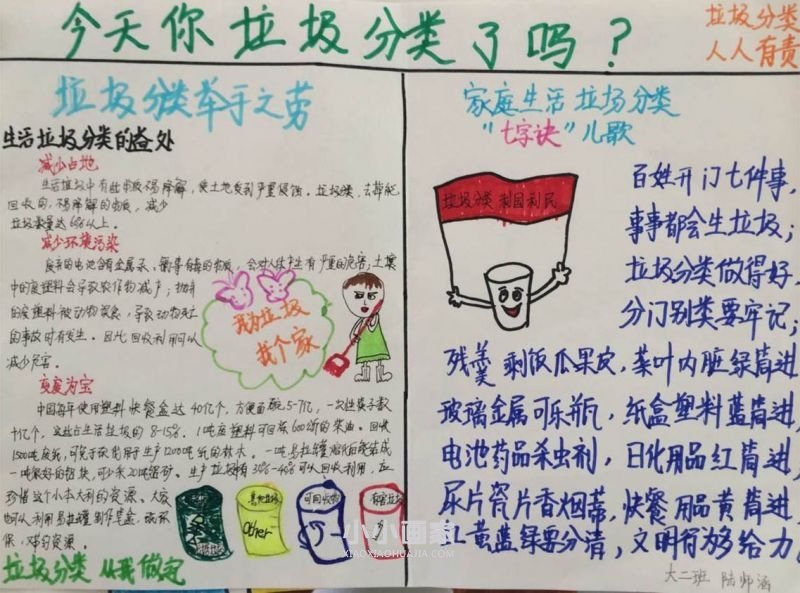 今天你垃圾分类了吗？
垃圾分类
人人有责
垃圾分类举手之劳
生活垃圾分类的益处
减少占地
生活垃圾中有些物质不易降解，使土地受到严重侵蚀。垃圾分类，去掉能
回收的、不易降解的物质，减少
垃圾数量达60%以上。
减少环境污染
废弃的电池含有金属汞、镉等有毒的物质，会对人体产生有严重的危害；土壤
中的废塑料会导致农作物减产；抛弃
的废塑料被动物误食，导致动物死亡
的事故时有发生。因此回收利用可以
减少危害。
我为垃圾
找个家
变废为宝
中国每年使用塑料快餐盒达40亿个，方便面碗5-7亿，一次性筷子数
十亿个，这些占生活垃圾的8-15%。1吨废塑料可回炼600斤的柴油。回收
1500吨废纸，可免于砍伐用于生产1200吨纸的林木。一吨易拉罐熔化后能结成
一吨很好的铝块，可少采20吨铝矿。生产垃圾有30%-40%可以回收利用，应
珍惜这个小本大利的资源。大家
也可以利用易拉罐制作笔盒，既环
保，又节约资源。
其他垃圾
Other
可回收物
有害垃圾
垃圾分类 从我做起
家庭生活垃圾分类
“七字诀”儿歌
垃圾分类 利国利民
百姓开门七件事，
事事都会生垃圾；
垃圾分类做得好，
分门别类要牢记；
残羹剩饭瓜果皮，菜叶内脏绿筒进
玻璃金属可乐瓶，纸盒塑料蓝筒进，
电池药品杀虫剂，日化用品红筒进，
尿片瓷片香烟蒂，快餐用品黄筒进
红黄蓝绿要分清，文明行为多给力
大二班 陆师涵
小小画家
XIAOXIAOHUAJIA.COM